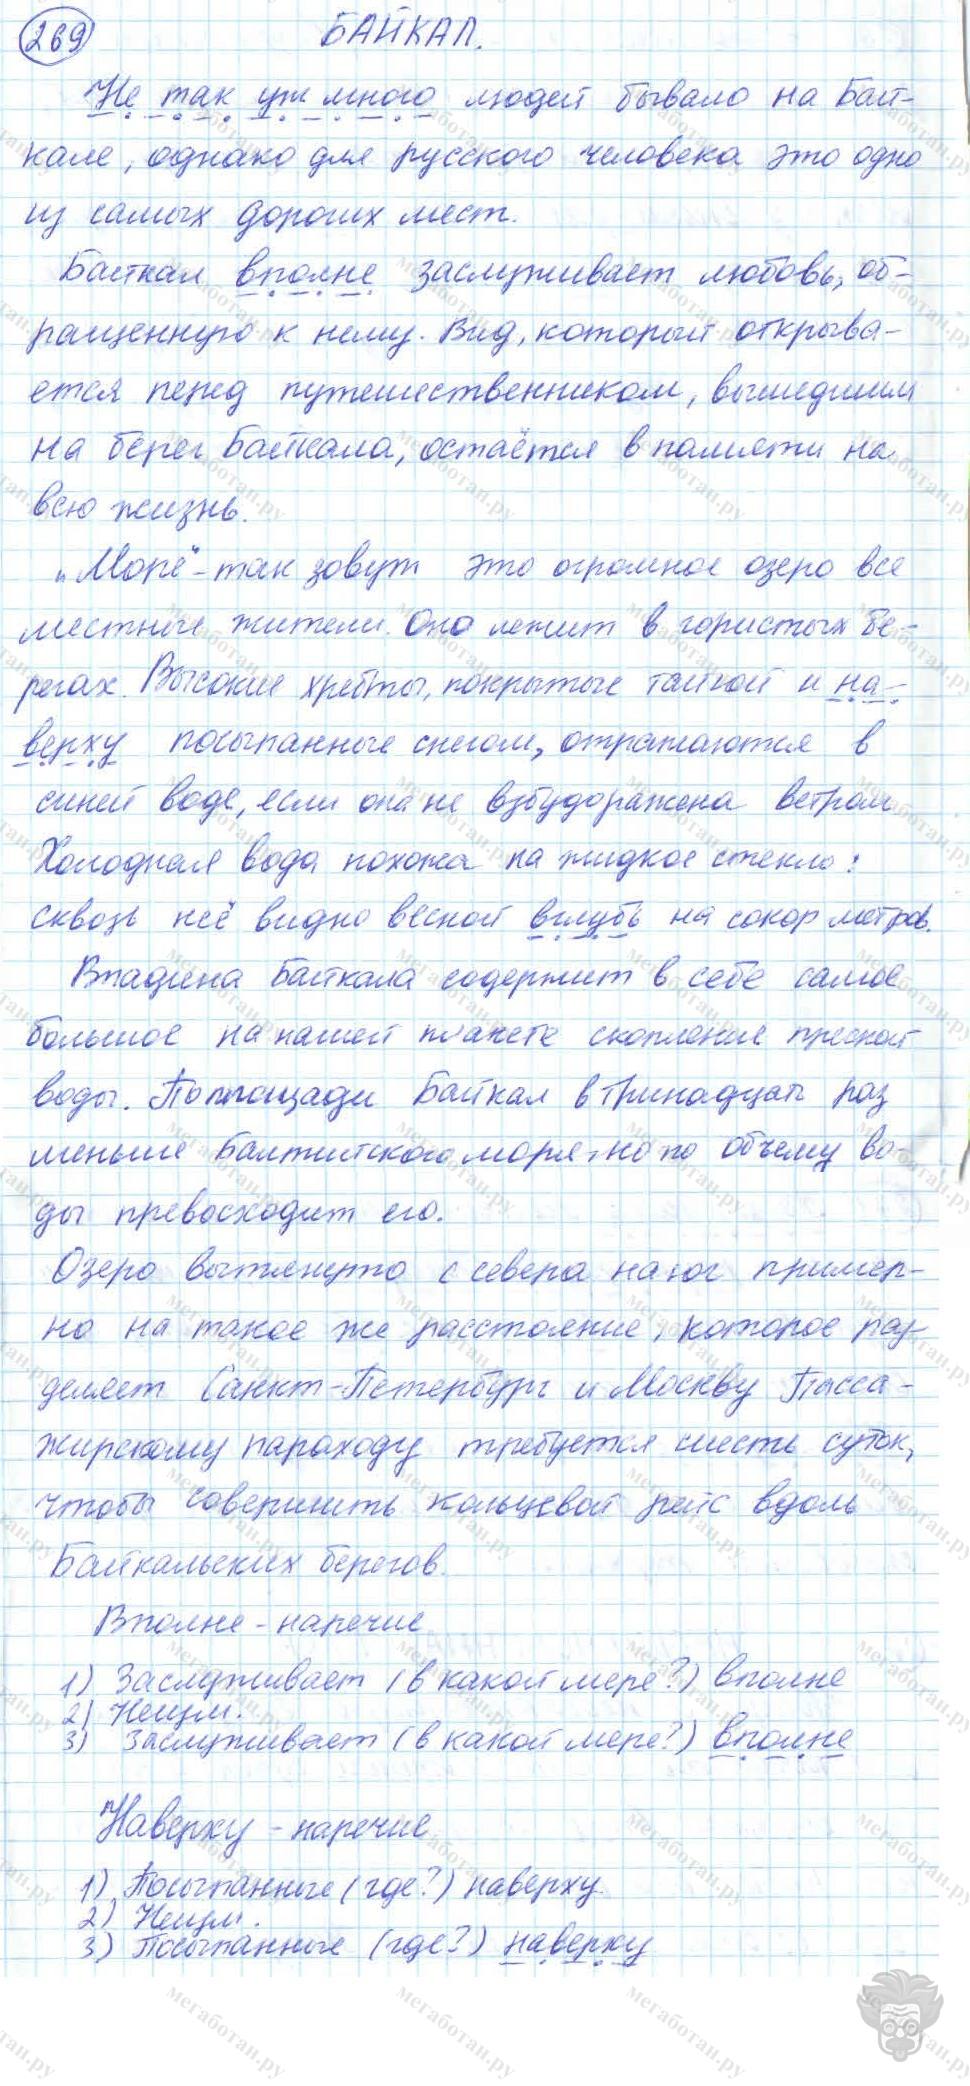 269
БАЙКАЛ.
Не так уж много людей бывало на Бай-
кале, однако для русского человека это одно
из самых дорогих мест.
Байкал вполне заслуживает любовь, об-
ращенную к нему. Вид, который открыва-
ется перед путешественником, вышедшим
на берег Байкала, остаётся в памяти на
всю жизнь.
„Море" - так зовут это огромное озеро все
местные жители. Оно лежит в гористых бе-
регах. Высокие хребты, покрытые тайгой и на-
верху посыпанные снегом, отражаются в
синей воде, если она не взбудоражена ветром
Холодная вода похожа на жидкое стекло:
сквозь неё видно весной вглубь на сокор метров.
Впадина Байкала содержит в себе самое
большое на нашей планете скопление пресной
воды. По площади Байкал в тринадцать раз
меньше Балтийского моря, но по объему во-
ды превосходит его.
Озеро вытянуто с севера на юг пример-
но на такое же расстояние, которое раз-
деляет Санкт-Петербург и Москву Пасса-
жирскому пароходу требуется шесть суток,
чтобы совершить кольцевой рейс вдоль
Байкальских берегов.
Вполне - наречие
1) Заслуживает (в какой мере?) вполне
2) Неизм.
3) Заслуживает (в какой мере?) вполне
Наверху - наречие
1) Посыпанные (где?) наверху.
2) Неизм.
3) Посыпанные (где?) наверху
мегаботан.ру